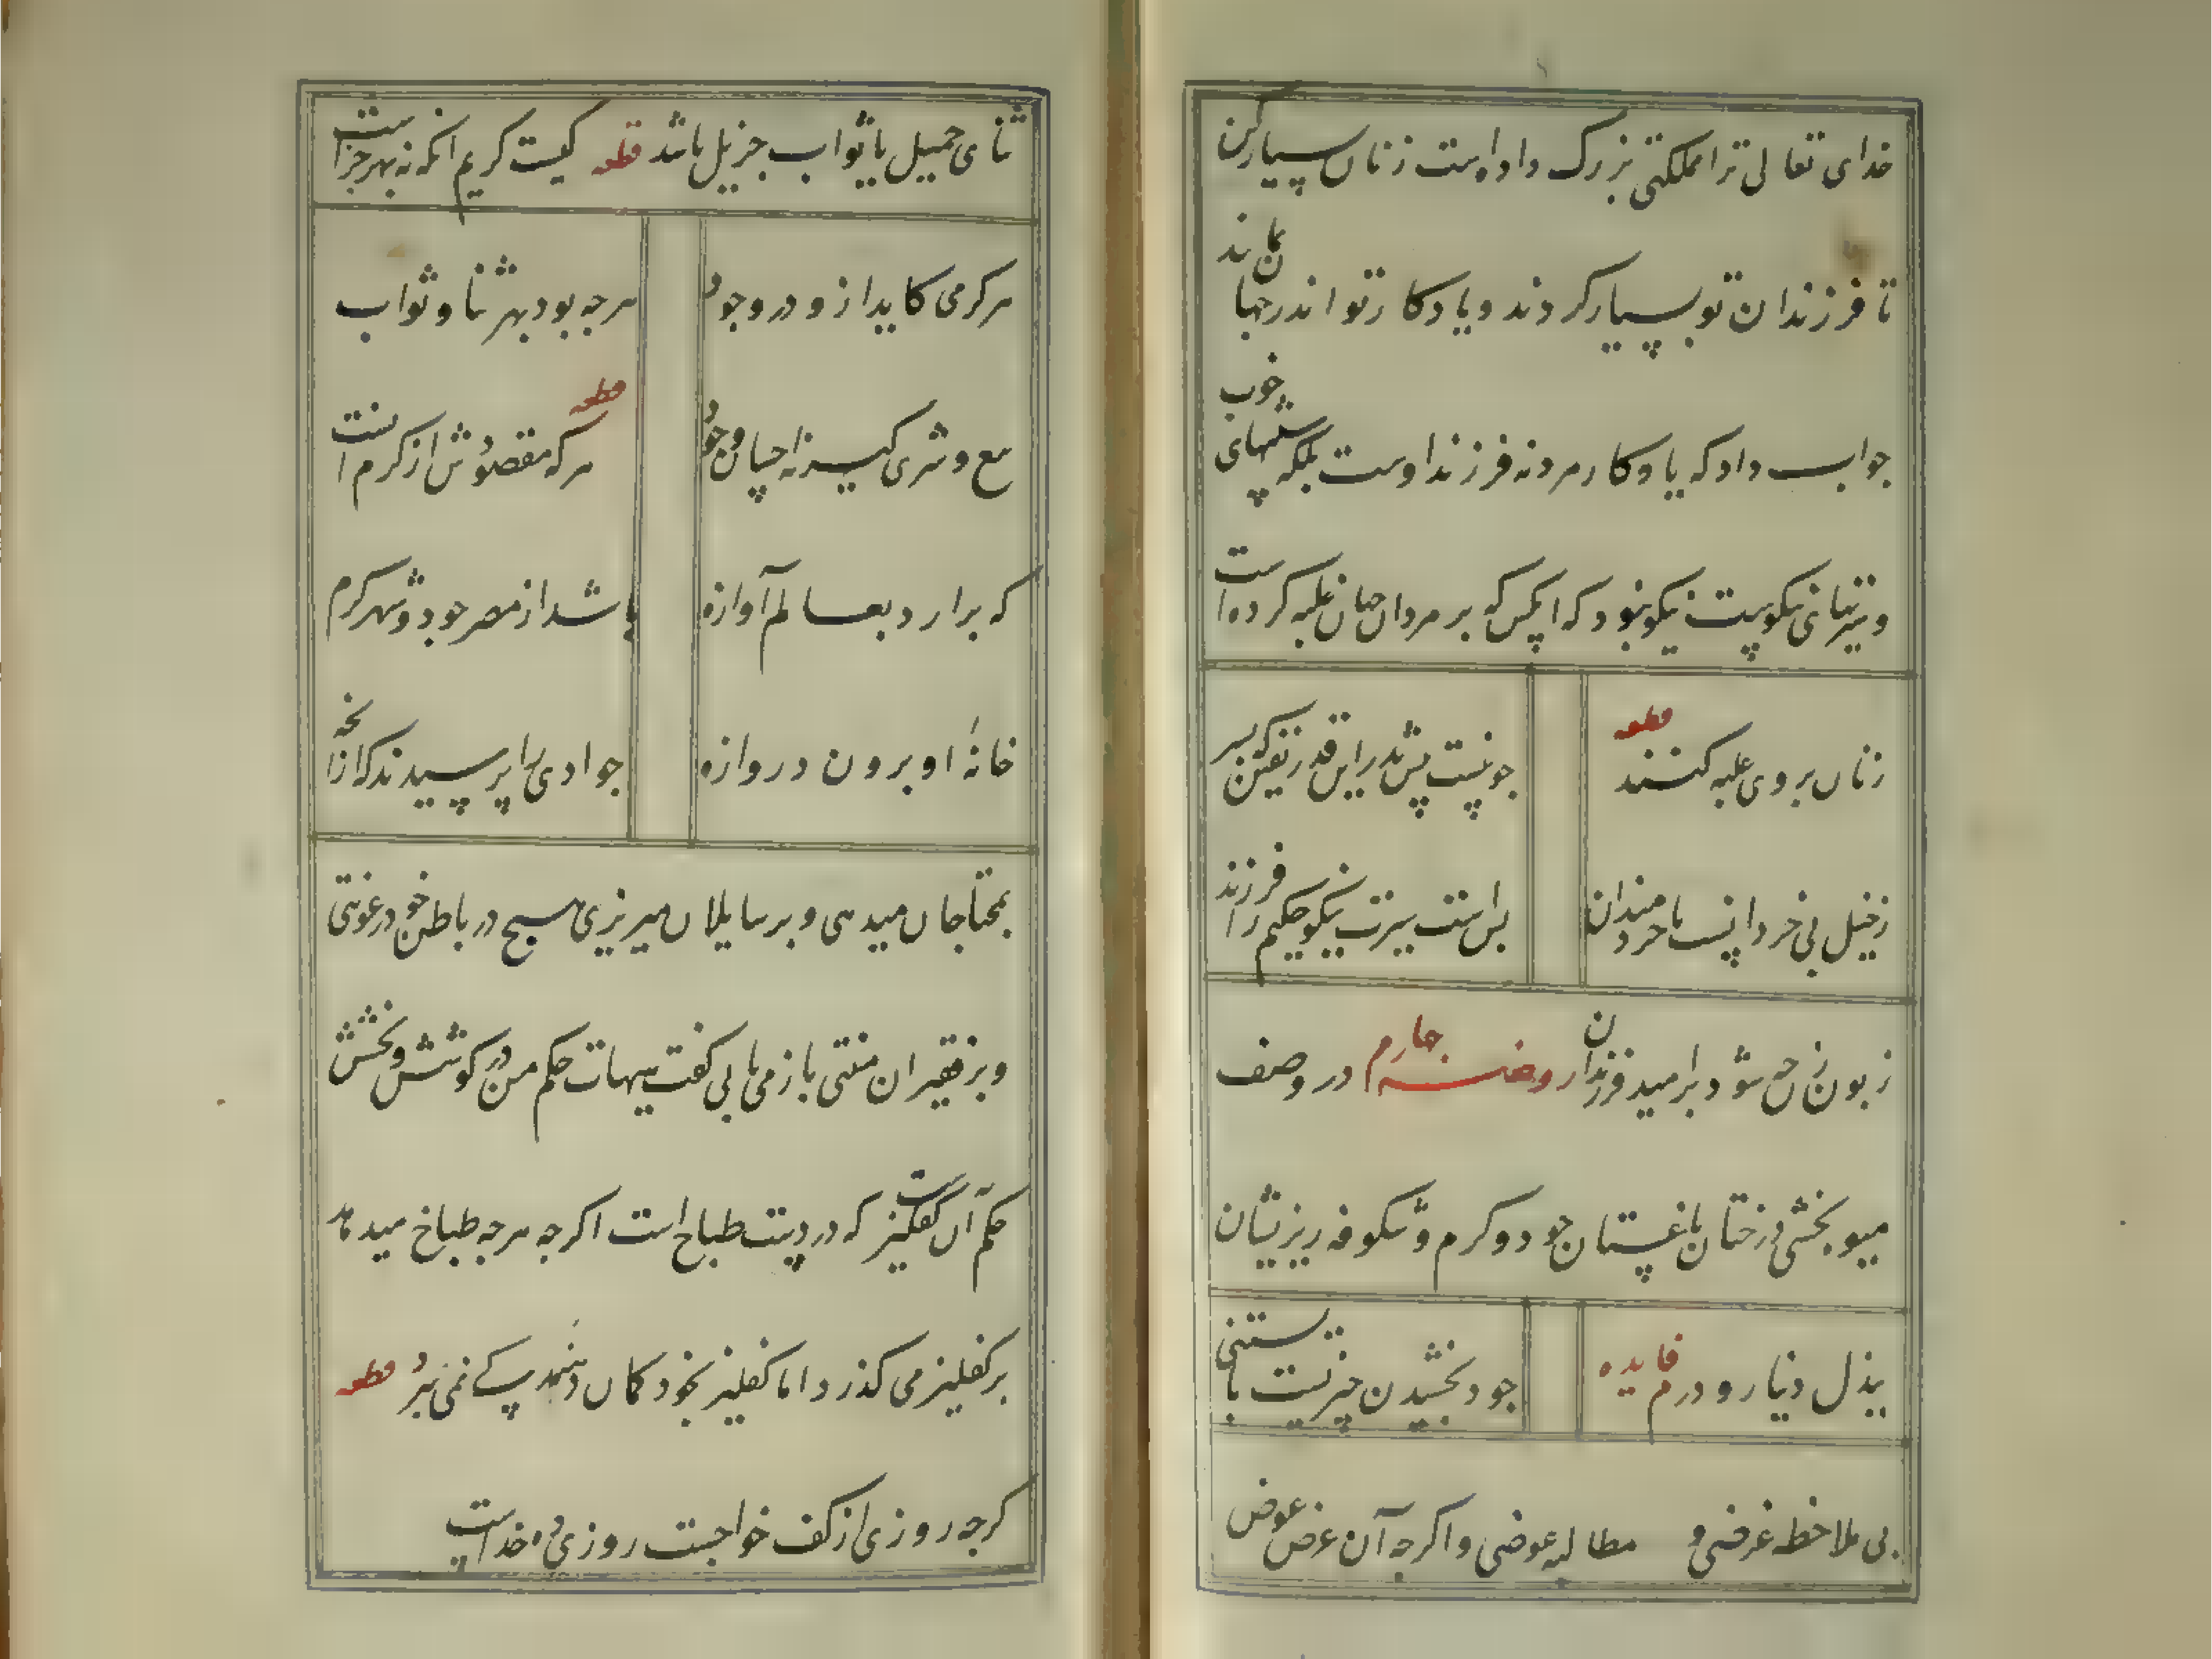 خدای تعالی ترا مملکتی بزرک داده است زنان بسیار کن
تا فرزندان تو بسیار کردند و یادکار تو اندر جهان
کانند
جواب داد که یادکار مرد نه فرزند اوست بلکه سنتهای خوب
و سیرتهای نیکوست نیکو نبود که ایکس که بر مردان جهان غلبه کرده است
زنان بر وی غلبه کنند
قطعه
جو نیست پس پدر این قدر یقین که پسر
زخیل بی خردانست یا خردمندان
بس است سیرت نیکو حکیم را فرزند
زبون زن جه شود بر امید فرزندان روضه جارم در وصف
میوه بخشی درختان باغستان جود و کرم و شکوفه ریزیشان
ببذل دینار و درم فایده
جود بخشیدن جیزیست بایستنی
بی ملاحظه غرضی و مطالبه عوضی و اکرجه آن غرض عوض
ثنای جمیل یا ثواب جزیل باشد قطعه کیست کریم انکه نه بهر جزاست
هر کرمی کاید ازو در وجود
هرجه بود بهر ثنا و ثواب
بیع و شری کیر نه احسان و جود
قطعه
هر که مقصودش از کرم انست
که برارد بعالم آوازه
باشد از مصر جود و شهر کرم
خانهٔ او برون دروازه
جوادی را پرسیدند که ازانجه
بمحتاجان میدهی و بر سایلان میریزی هیج در باطن خود رعونتی
و بر فقیران منتی باز می یابی کفت هیهات حکم من در کوشش و بخشش
حکم آن کفلیزست که در دست طباخ است اکرجه هرجه طباخ میدهد
بر کفلیز می کذرد اما کفلیز بخود کمان دهندکی نمی برد قطعه
کرجه روزی از کف خواجست روزی ده خداست